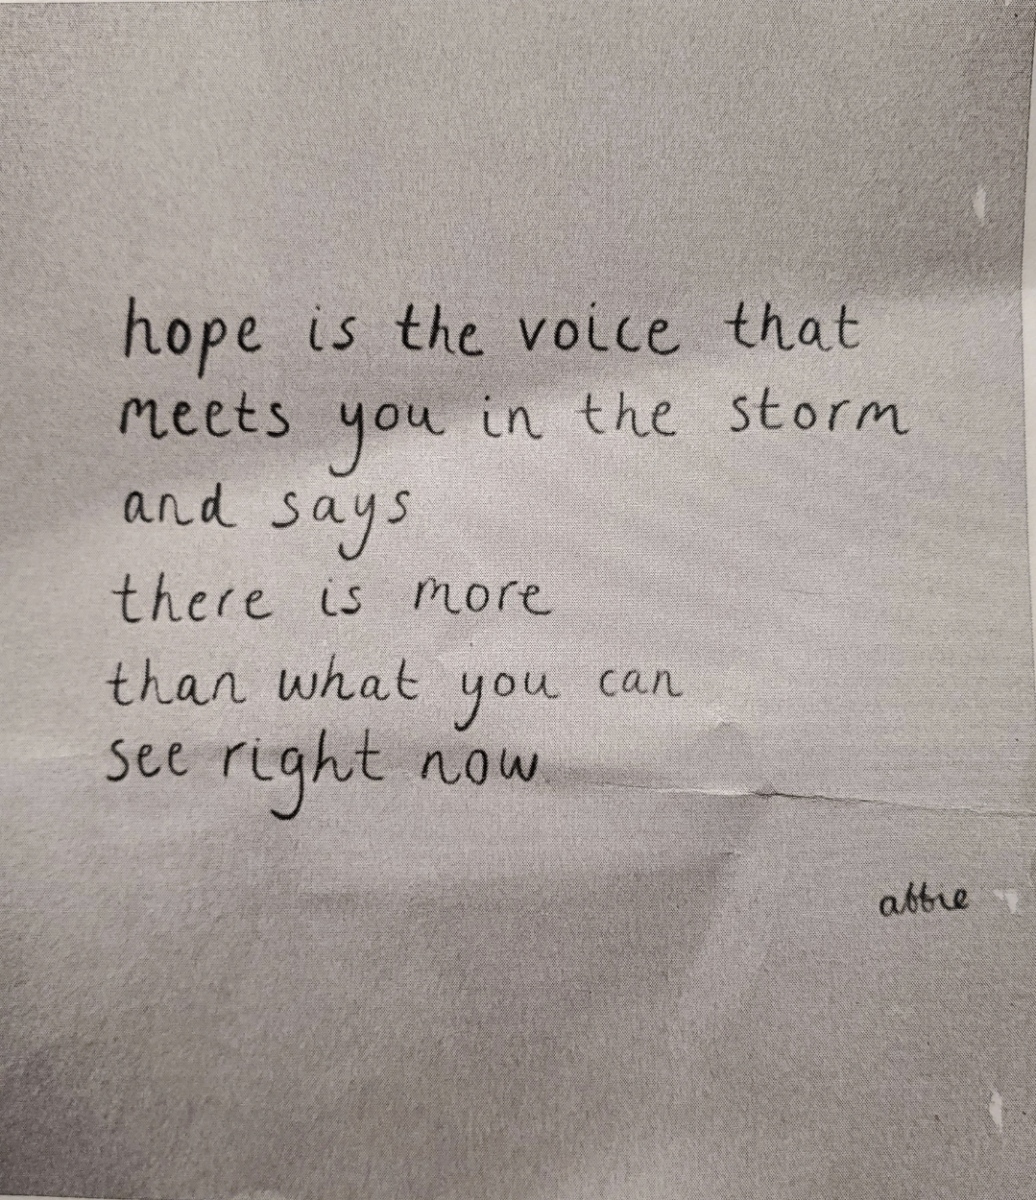 hope is the voice that
meets you in the storm
and says
there is more
than what you can
see right now
abbie